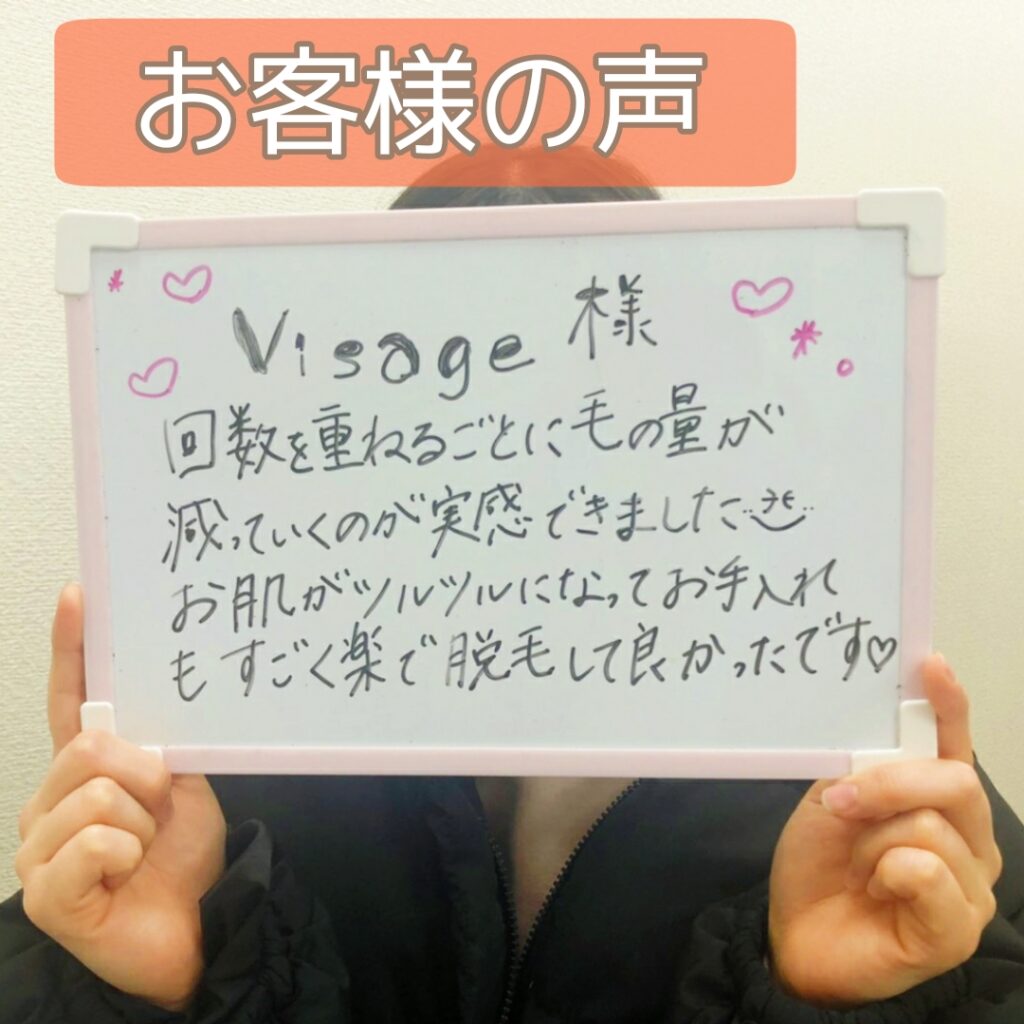 お客様の声
Visage 様
回数を重ねるごとに毛の量が
減っていくのが実感できました
お肌がツルツルになってお手入れ
もすごく楽で脱毛して良かったです♡